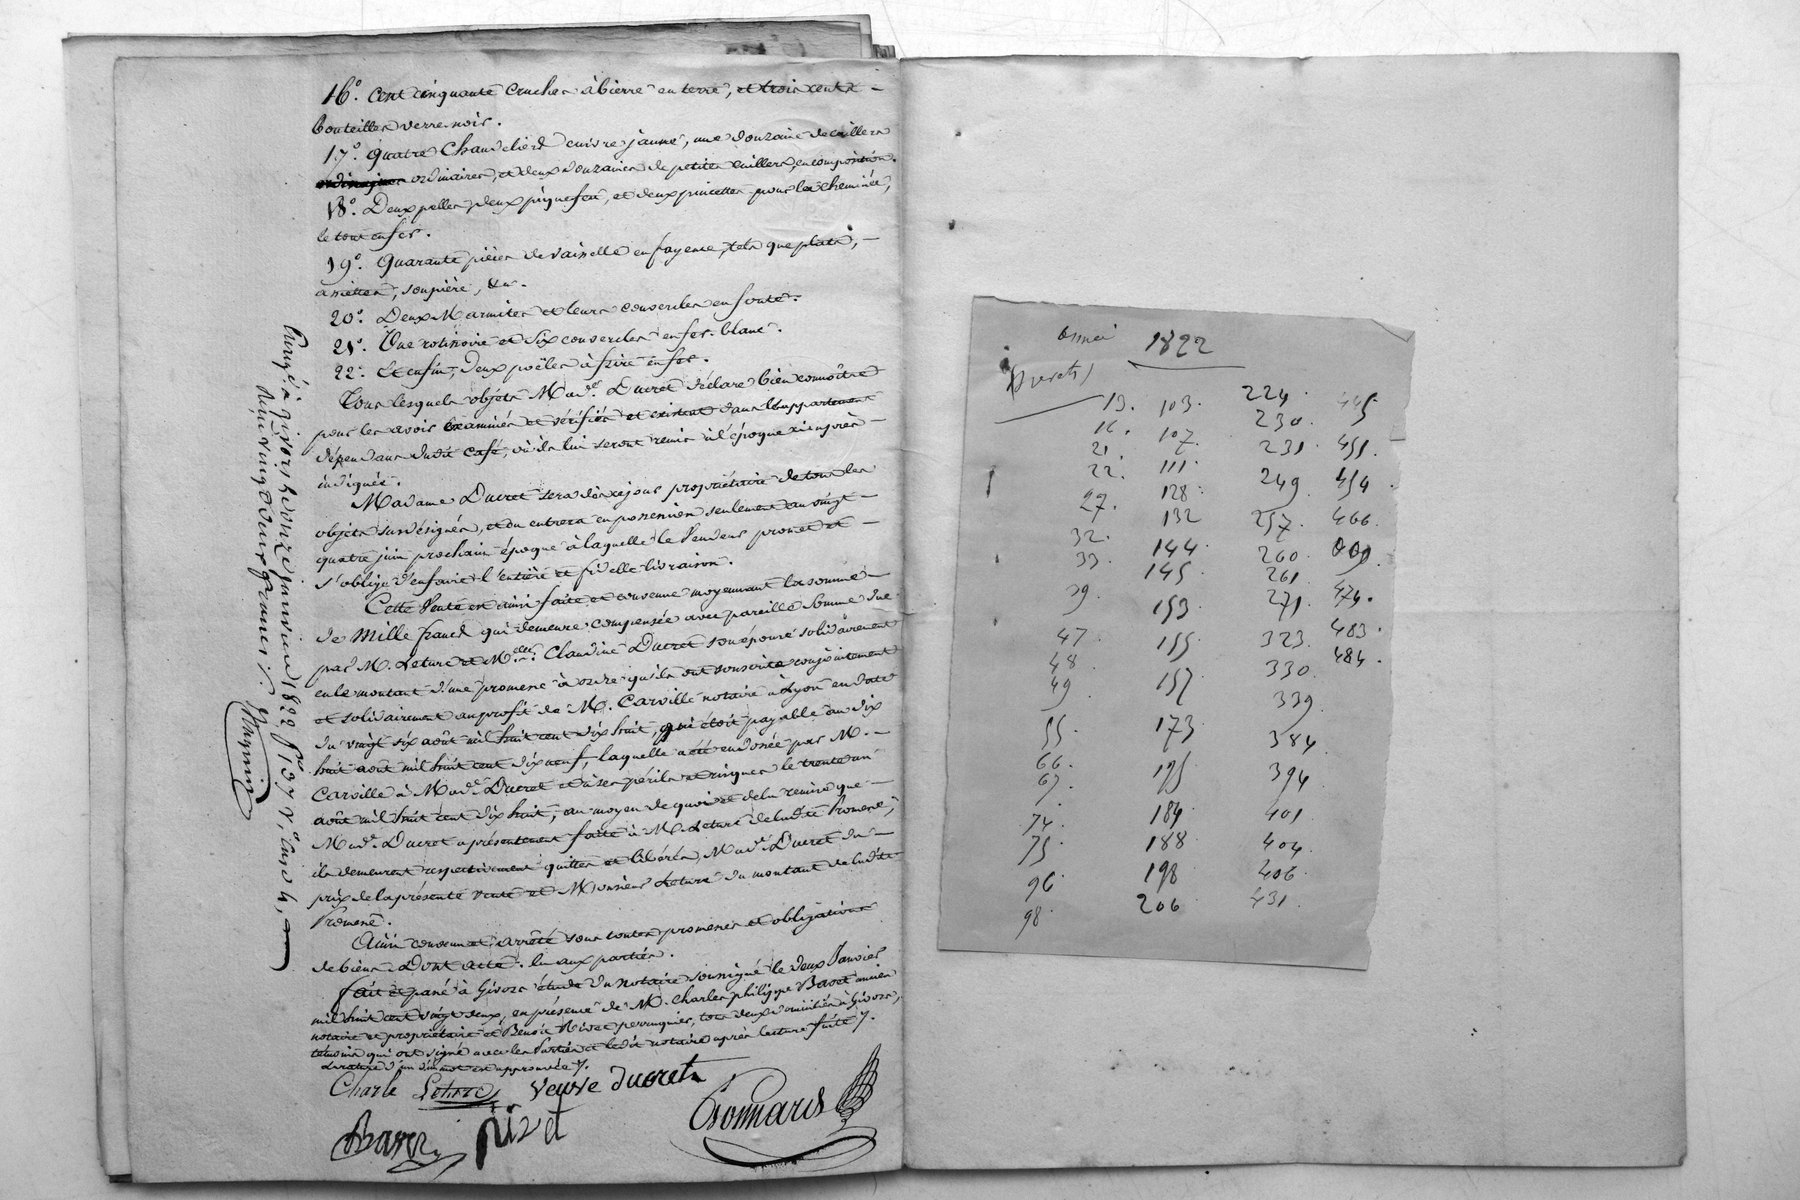 16.° cent cinquante cruches à bierre en terre, et trois cents -
bouteilles verre noir.
17.° quatre chandeliers cuivre jaune, une douzaine de cuillers
ordinaires, et deux douzaines de petites cuillers, en composition.
18.° Deux pelles, deux piquefeu, et deux pincettes pour la cheminée,
le tout en fer.
19.° Quarante pièces de vaisselle en fayence, tels que plats, -
assiettes, soupière, &a.
20.° Deux Marmites et leurs couvercles en fonte.
21.° Une rotissoire et six couvercles en fer-blanc.
22.° Et enfin, deux poëles à frire en fer.
Tous lesquels objets Mad.e Ducret déclare bien connoître
pour les avoir examinés et vérifiés et existent dans l'appartement
dépendant dudit café, où ils lui seront remis à l'époque ci après -
indiquée.
Madame Ducret sera dès ce jour propriétaire de tous les
objets sus désignés, et en entrera en possession seulement au vingt -
quatre juin prochain époque à laquelle le Vendeur promet et -
s'oblige d'en faire l'entière et fidelle livraison.
Cette Vente est ainsi faite et convenue moyennant la somme -
de Mille francs qui demeure compensée avec pareille somme due
par M. Leture et M.elle Claudine Ducret son épouse solidairement
en le montant d'une promesse à ordre qu'ils ont souscrite conjointement
et solidairement au profit de M. Carville notaire à Lyon en date
du vingt six août mil huit cent dix huit, qui étoit payable au dix
huit août mil huit cent dix neuf, laquelle a été endossée par M. -
Carville à Mad.e Ducret et à ses périls et risques le trente un
août mil huit cent dix huit; au moyen de quoi et de la remise que -
Mad.e Ducret a présentement faite à M. Leture de ladite Promesse,
ils demeurent respectivement quittes et libérés, Mad.e Ducret du -
prix de la présente vente et Monsieur Leture du montant de ladite
Promesse.
Ainsi convenu et arrêté sous toutes promesses et obligations
de biens. Dont acte. lu aux parties.
fait et passé à Givors étude du notaire soussigné le deux Janvier
mil huit cent vingt deux, en présence de M. Charles philippe Basset ancien
notaire et propriétaire et Benoit Rivet perruquier, tous deux domiciliés à Givors,
témoins qui ont signé avec les Parties et ledit notaire après lecture faite.
La rature d'un mot est approuvée.
Charle Leture veuve ducret
Rivet
Bonnard
Enregé à Givors le douze janvier 1822 f° 137 V.° case 4,
Reçu vingt deux francs
1822
13. 103. 224. 445
16. 107. 230. 451.
21. 111. 231. 454
22. 128. 249. 466.
27. 132 257.
32. 144. 260. 474.
33. 145. 261. 483.
39. 153 271. 484.
47. 155. 323.
48. 157. 330.
49. 173 339.
55. 195. 384
66. 184. 394
67. 188. 401
74. 198. 404
75. 206. 406.
96. 431.
98.